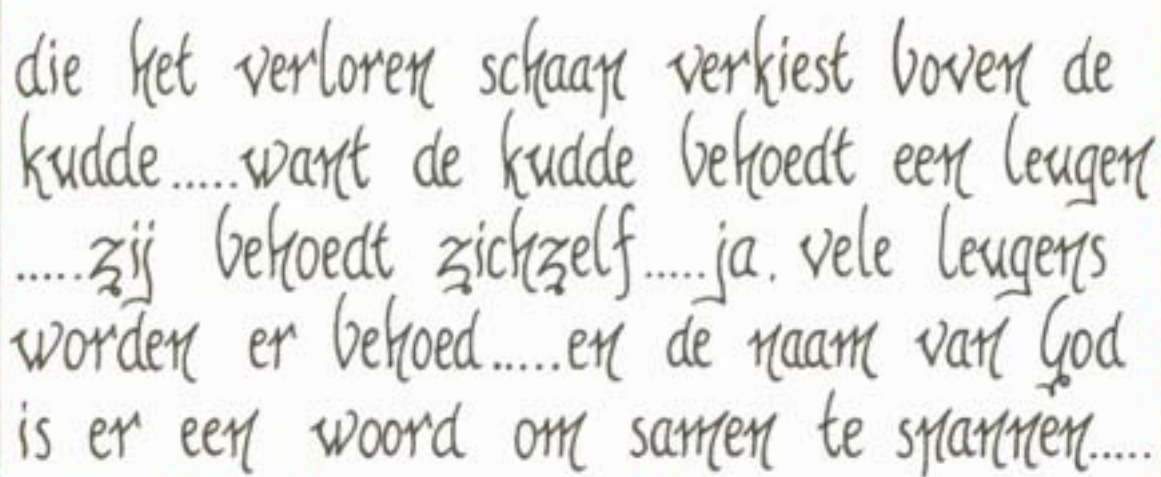 die het verloren schaap verkiest boven de
kudde.....want de kudde behoedt een leugen
.....zij behoedt zichzelf.....ja, vele leugens
worden er behoed.....en de naam van God
is er een woord om samen te spannen.....